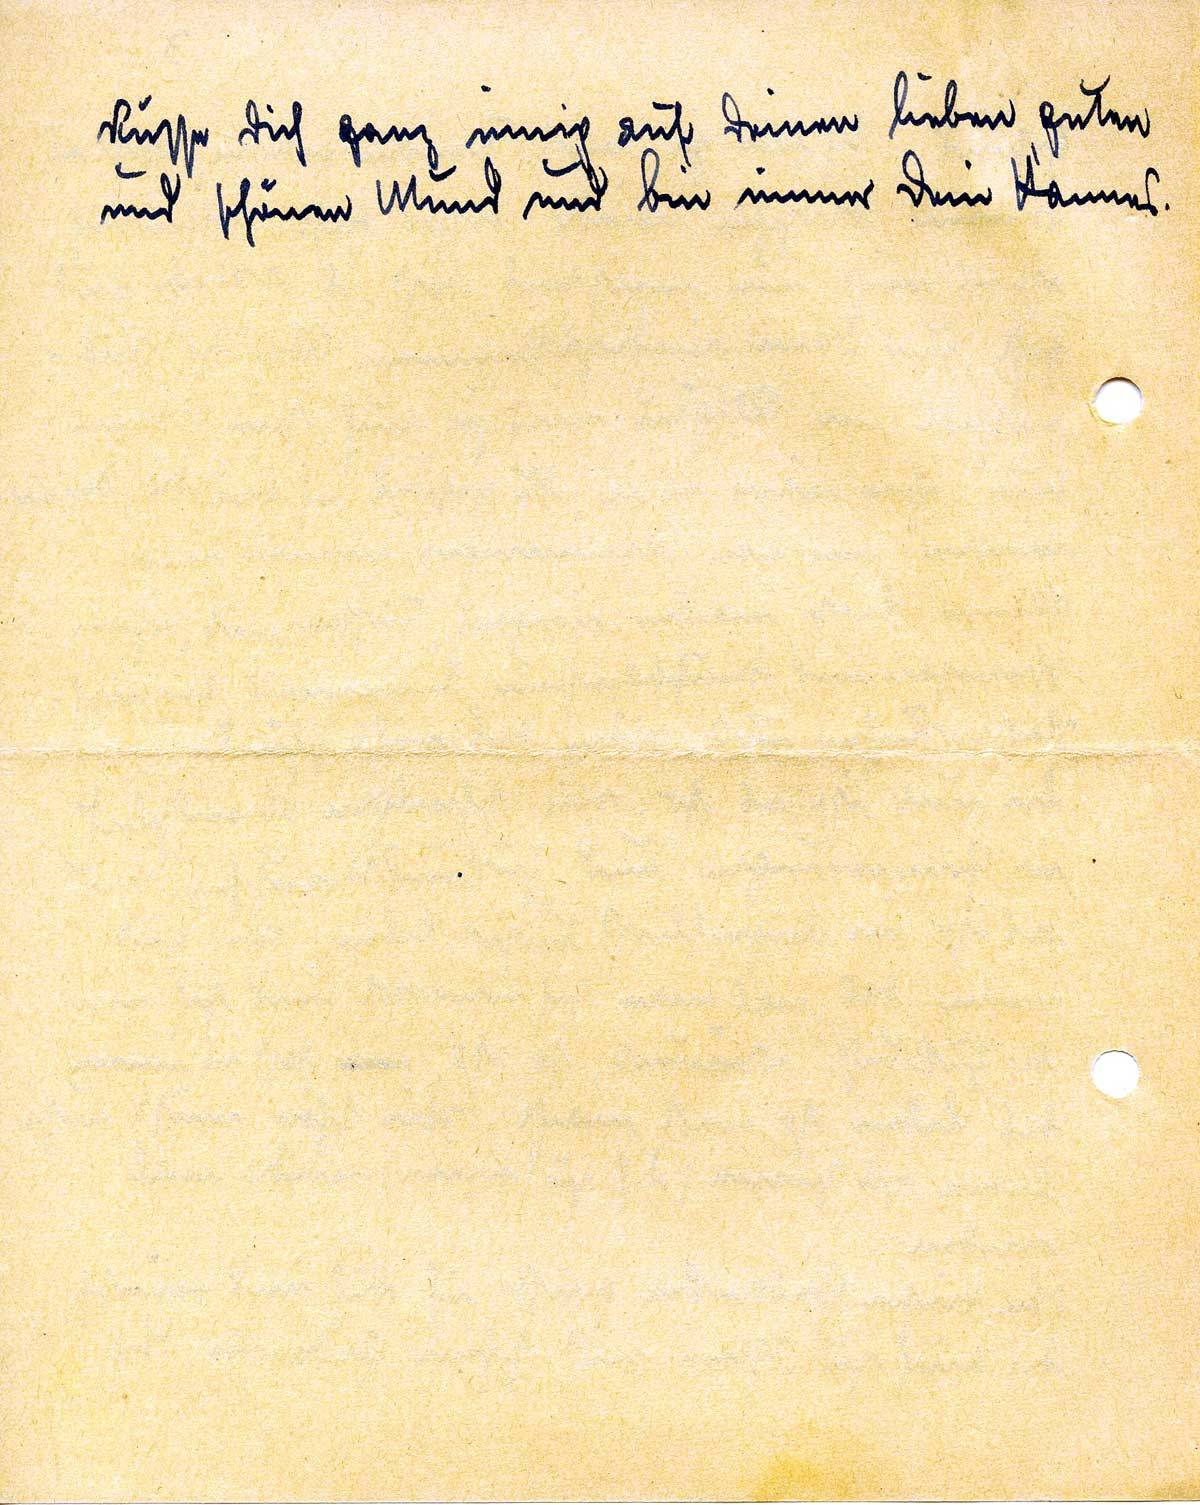 küsse Dich ganz innig auf Deinen lieben guten
und schönen Mund und bin immer Dein Hannes.